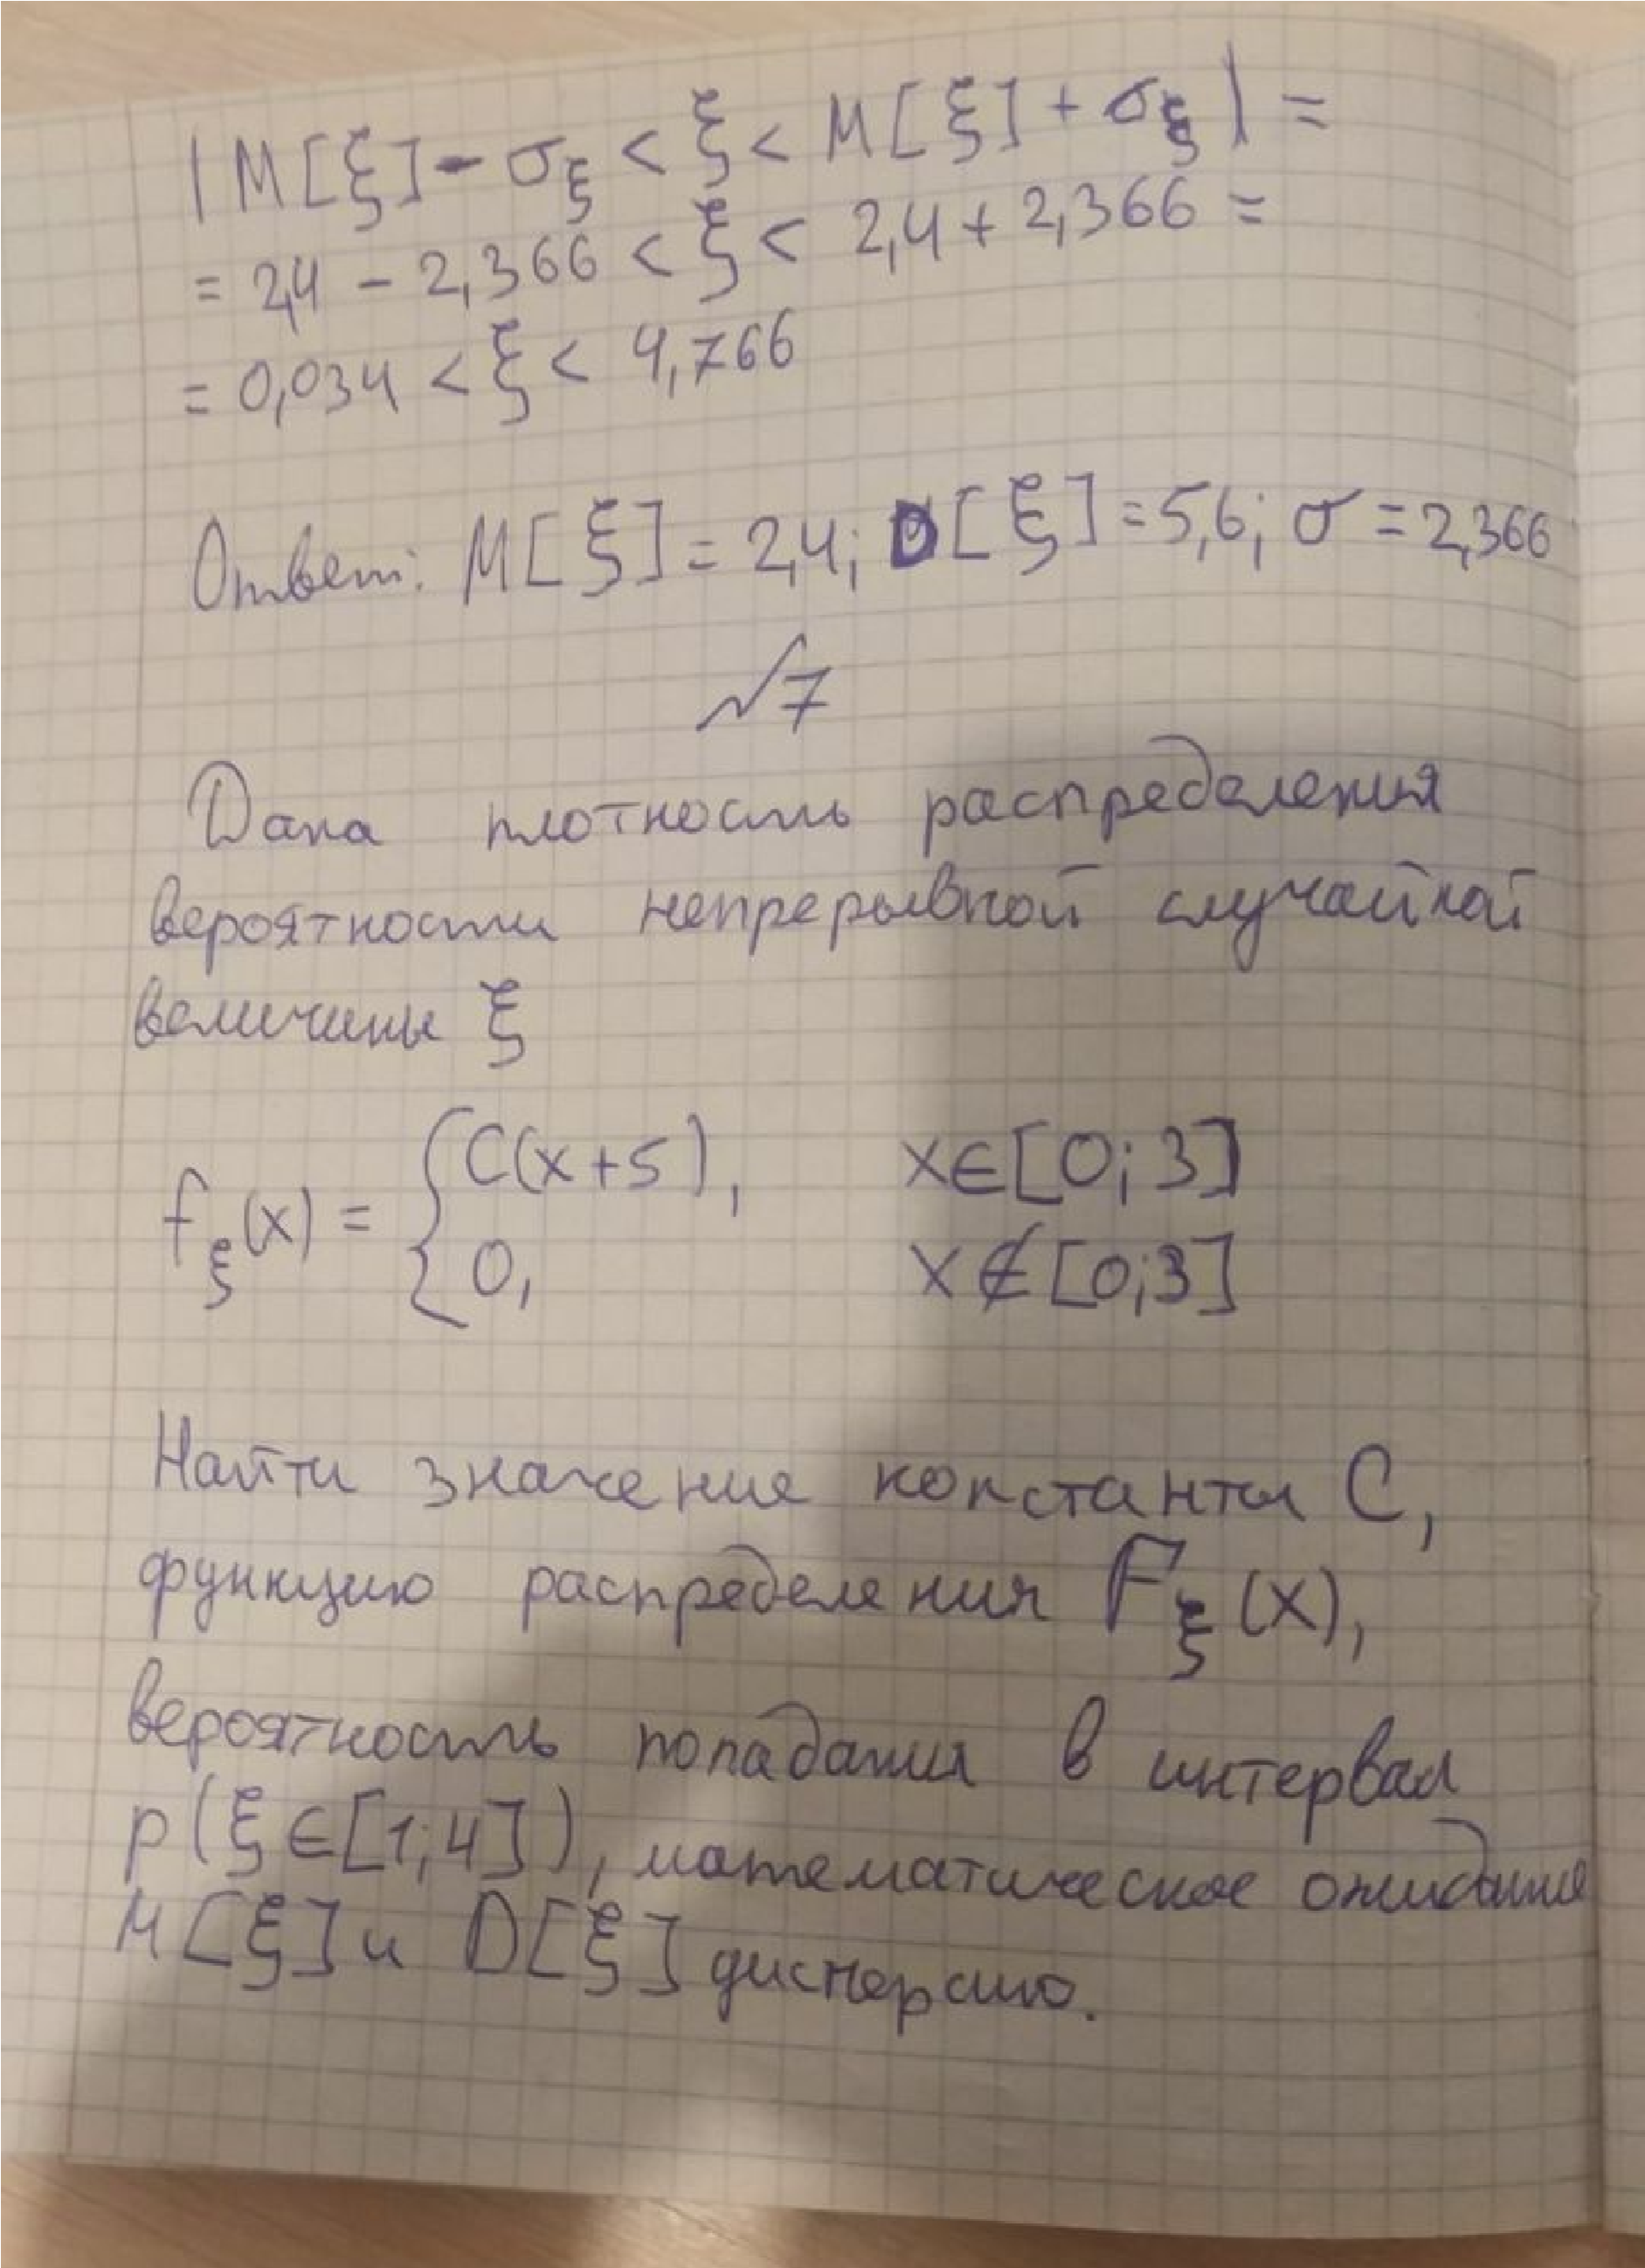 |M[ξ] - σ_ξ < ξ < M[ξ] + σ_ξ| =
= 2,4 - 2,366 < ξ < 2,4 + 2,366 =
= 0,034 < ξ < 4,766
Ответ: M[ξ] = 2,4; D[ξ] = 5,6; σ = 2,366
№7
Дана плотность распределения
вероятности непрерывной случайной
величины ξ
f_ξ(x) = { C(x+5), x∈[0;3]
0, x∉[0;3]
Найти значение константы C,
функцию распределения F_ξ(x),
вероятность попадания в интервал
p(ξ∈[1;4]), математическое ожидание
M[ξ] и D[ξ] дисперсию.